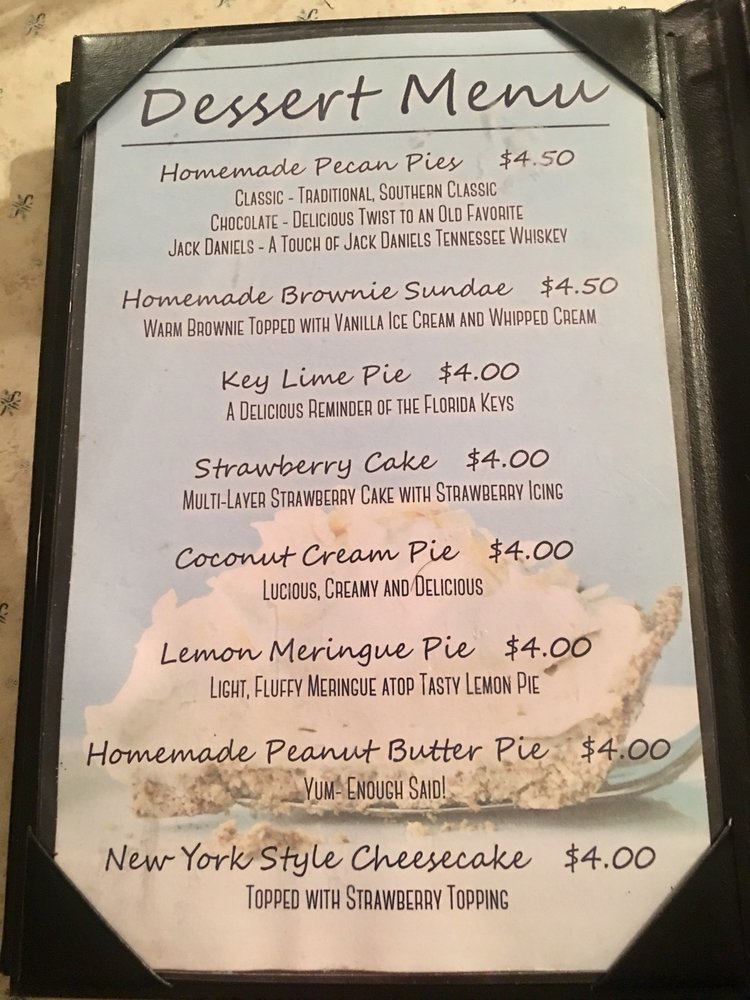 Dessert Menu
Homemade Pecan Pies $4.50
Classic - Traditional, Southern Classic
Chocolate - Delicious Twist to an Old Favorite
Jack Daniels - A Touch of Jack Daniels Tennessee Whiskey
Homemade Brownie Sundae $4.50
Warm Brownie Topped with Vanilla Ice Cream and Whipped Cream
Key Lime Pie $4.00
A Delicious Reminder of the Florida Keys
Strawberry Cake $4.00
Multi-Layer Strawberry Cake with Strawberry Icing
Coconut Cream Pie $4.00
Lucious, Creamy and Delicious
Lemon Meringue Pie $4.00
Light, Fluffy Meringue atop Tasty Lemon Pie
Homemade Peanut Butter Pie $4.00
Yum- Enough Said!
New York Style Cheesecake $4.00
Topped with Strawberry Topping